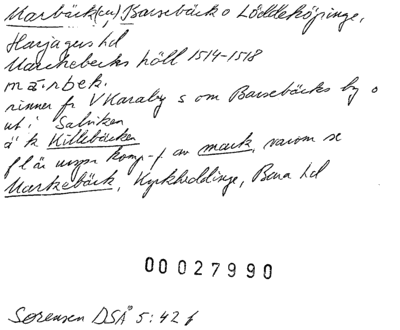 Marbäck(en) Barsebäck o Löddeköpinge,
Harjagers hd
Marckebecks höll 1514-1518
má.rbek.
rinner fr V Karaby s om Barsebäcks by o
ut i Salviken
ä k Killebäcken
f l är urspr komp-f av mark, varom se
Markebäck, Kyrkheddinge, Bara hd
00027990
Sørensen DSÅ 5:42 f